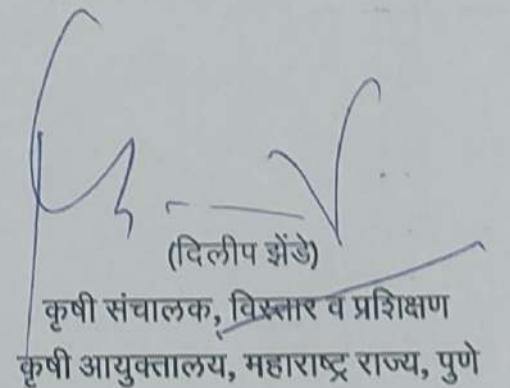 (दिलीप झेंडे)
कृषी संचालक, विस्तार व प्रशिक्षण
कृषी आयुक्तालय, महाराष्ट्र राज्य, पुणे